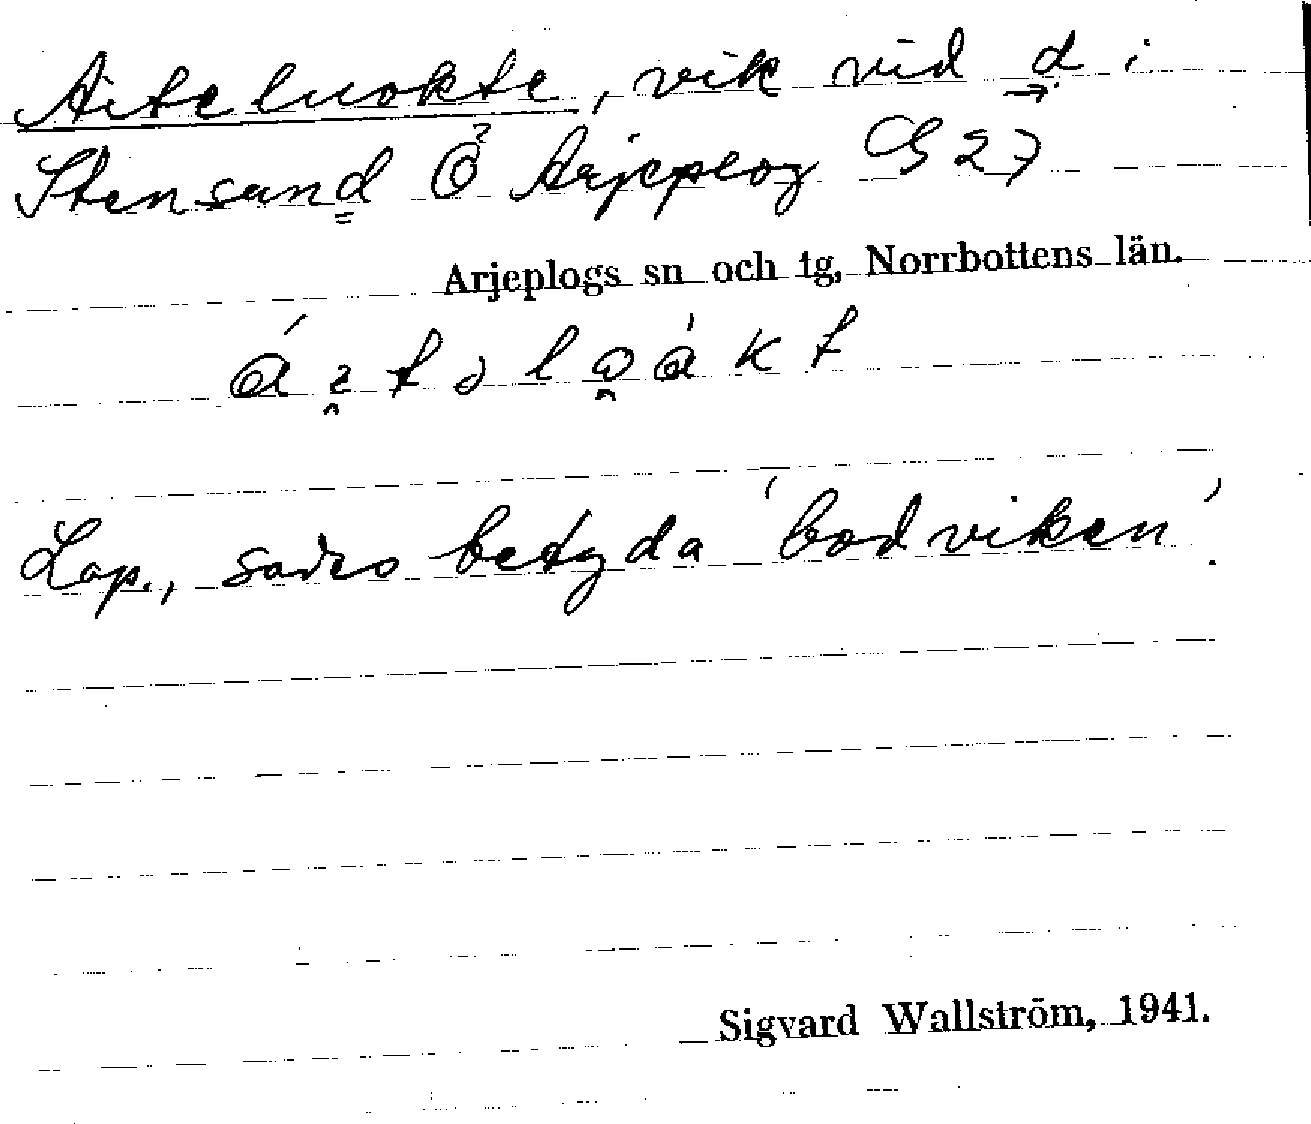 Aiteluokte, vik vid d i
Stensund Ö Arjeplog G 27
Arjeplogs sn och tg, Norrbottens län.
Lap., säges betyda 'bodviken'.
Sigvard Wallström, 1941.